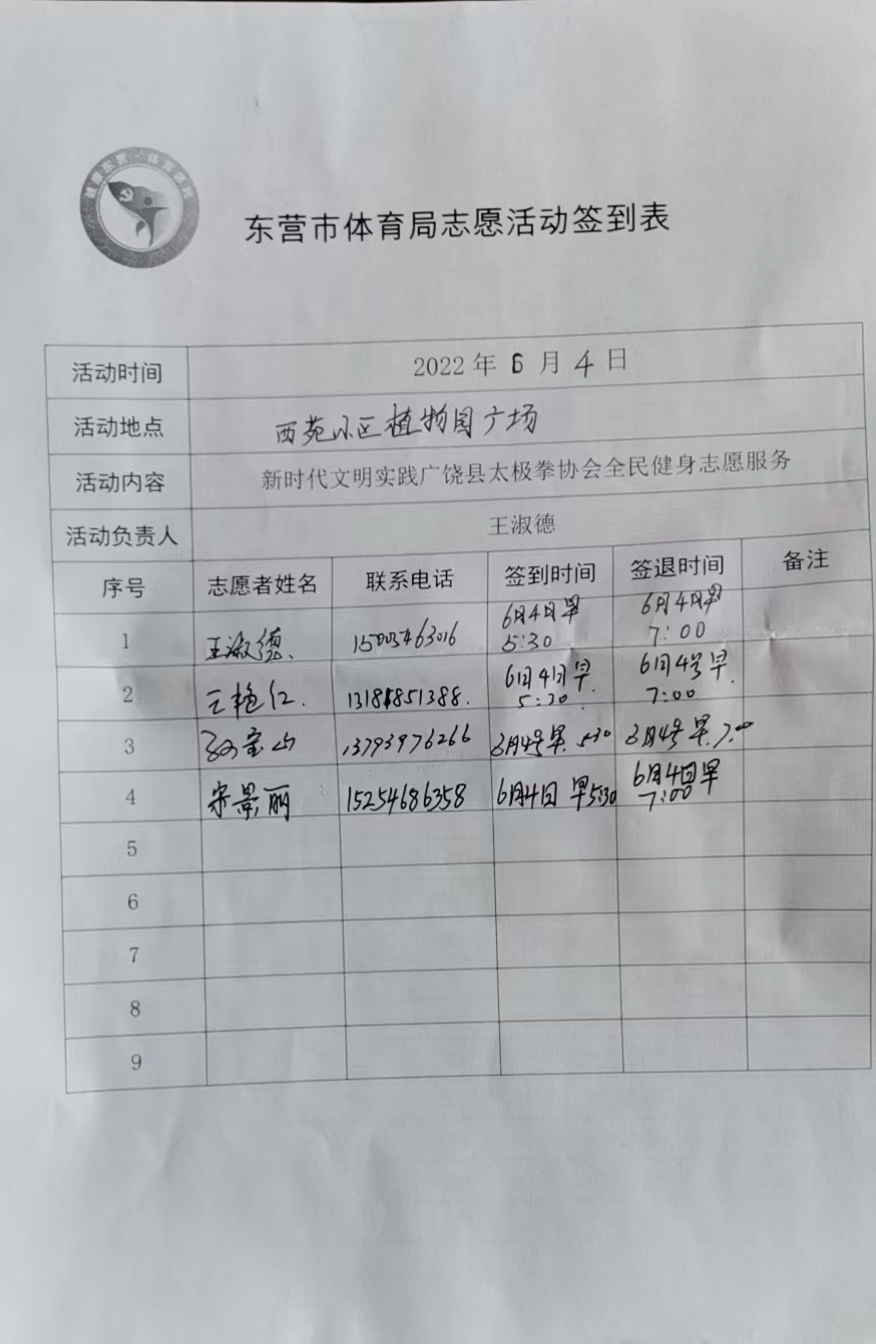 东营市体育局志愿活动签到表
活动时间 2022年6月4日
活动地点 西苑小区植物园广场
活动内容 新时代文明实践广饶县太极拳协会全民健身志愿服务
活动负责人 王淑德
序号 志愿者姓名 联系电话 签到时间 签退时间 备注
1 王淑德、 6月4日早 5:30 6月4日早 7:00
2 王艳红. 13181851388. 6月4日早. 5:30 6月4号早. 7:00
3 孙宝山 13793976266 6月4号早. 5:30 6月4号早. 7:00
4 宋景丽 15254686358 6月4日 早5:30 6月4日早 7:00
5
6
7
8
9